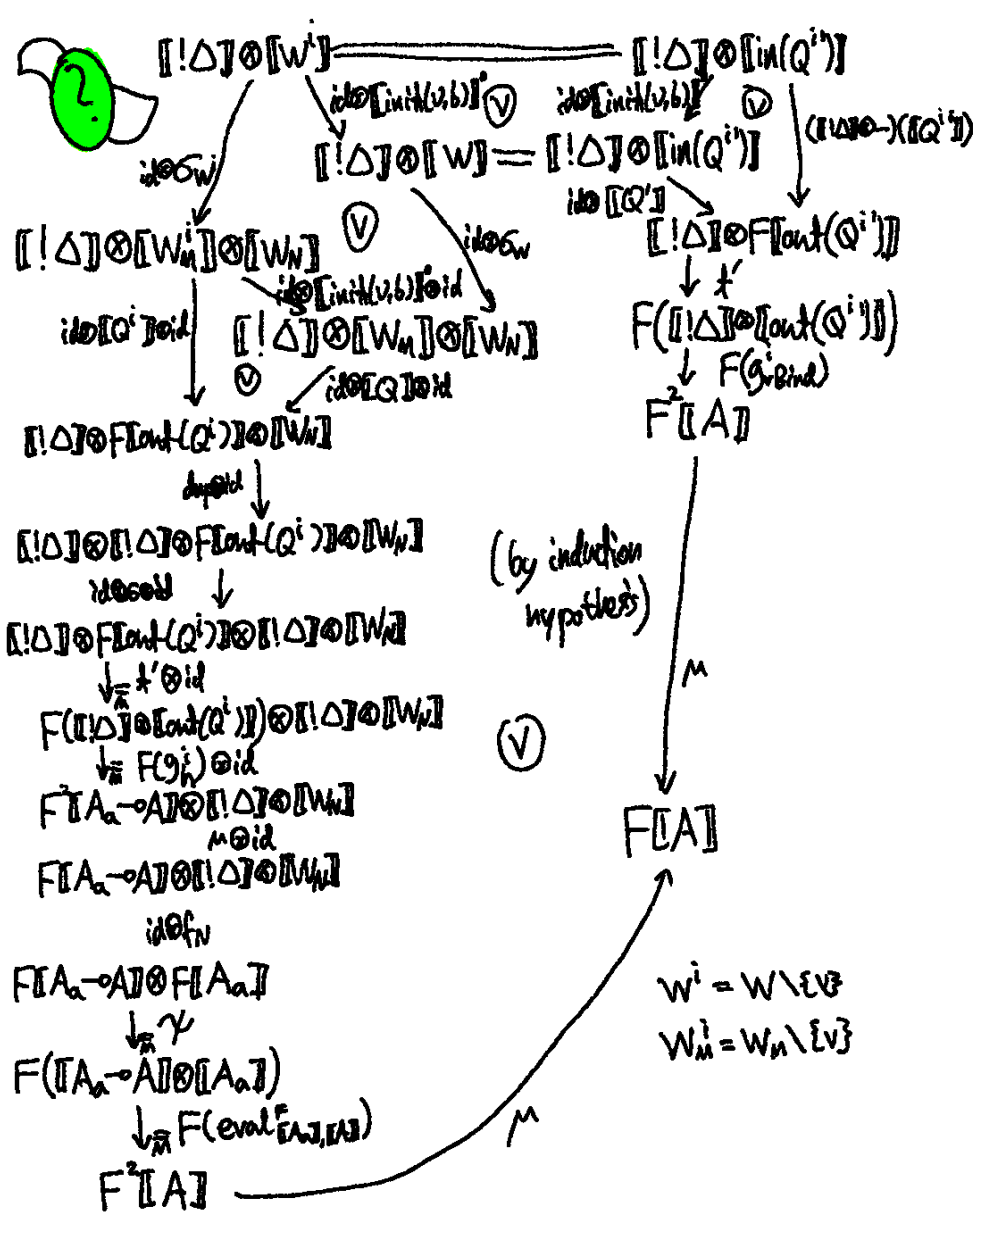 ?
⟦!Δ⟧⊗⟦Wⁱ⟧ ⟦!Δ⟧⊗⟦in(Qⁱ')⟧
id⊗⟦init(v,b)⟧° Ⓥ id⊗⟦init(v,b)⟧° Ⓥ
(⟦!Δ⟧⊗-)(⟦Qⁱ'⟧)
id⊗σ_Wⁱ
⟦!Δ⟧⊗⟦W⟧ = ⟦!Δ⟧⊗⟦in(Q')⟧
id⊗⟦Q'⟧
Ⓥ id⊗σ_W
⟦!Δ⟧⊗⟦W_Mⁱ⟧⊗⟦W_N⟧ ⟦!Δ⟧⊗F⟦out(Qⁱ')⟧
id⊗⟦init(v,b)⟧°⊗id t'
id⊗⟦Qⁱ⟧⊗id
⟦!Δ⟧⊗⟦W_M⟧⊗⟦W_N⟧ F(⟦!Δ⟧⊗⟦out(Qⁱ')⟧)
Ⓥ id⊗⟦Q⟧⊗id F(gⁱ_rBind)
⟦!Δ⟧⊗F⟦out(Qⁱ)⟧⊗⟦W_N⟧ F²⟦A⟧
dup⊗id
⟦!Δ⟧⊗⟦!Δ⟧⊗F⟦out(Qⁱ)⟧⊗⟦W_N⟧
(by induction
hypothesis)
⟦!Δ⟧⊗F⟦out(Qⁱ)⟧⊗⟦!Δ⟧⊗⟦W_N⟧
t'⊗id μ
F(⟦!Δ⟧⊗⟦out(Qⁱ)⟧)⊗⟦!Δ⟧⊗⟦W_N⟧ Ⓥ
F(gⁱ_h)⊗id
F²⟦A_a⊸A⟧⊗⟦!Δ⟧⊗⟦W_N⟧
μ⊗id
F⟦A_a⊸A⟧⊗⟦!Δ⟧⊗⟦W_N⟧ F⟦A⟧
id⊗f_N
F⟦A_a⊸A⟧⊗F⟦A_a⟧ Wⁱ = W\{v}
ψ W_Mⁱ = W_M\{v}
F(⟦A_a⊸A⟧⊗⟦A_a⟧)
F(eval^F_⟦A_a⟧,⟦A⟧) μ
F²⟦A⟧